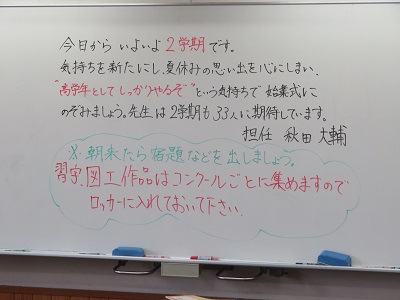 今日から いよいよ 2学期 です。
気持ちを新たにし、夏休みの思い出を心にしまい、
"高学年としてしっかりやるぞ"という気持ちで 始業式に
のぞみましょう。先生は2学期も33人に期待しています。
担任 秋田 大輔
※朝来たら宿題などを出しましょう。
習字、図工作品はコンクールごとに集めますので
ロッカーに入れておいて下さい。